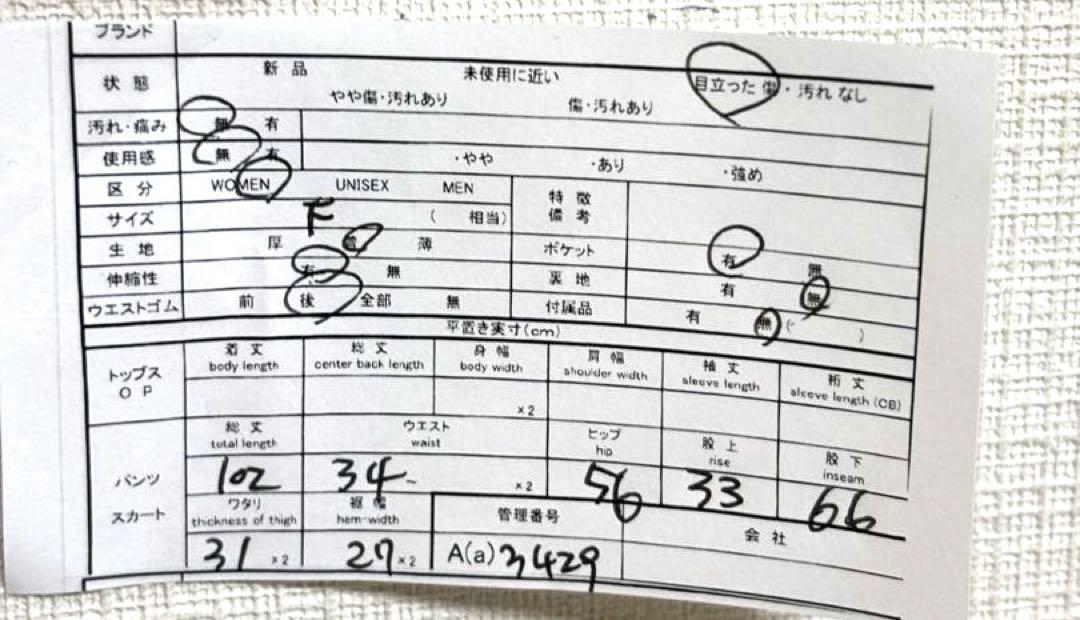 ブランド
状態 新品 未使用に近い 目立った 傷・汚れ なし
やや傷・汚れあり 傷・汚れあり
汚れ・痛み 無 有
使用感 無 有 ・やや ・あり ・強め
区分 WOMEN UNISEX MEN 特徴 備考
サイズ F ( 相当)
生地 厚 普 薄 ポケット 有 無
伸縮性 有 無 裏地 有 無
ウエストゴム 前 後 全部 無 付属品 有 無 ( )
平置き実寸(cm)
トップス OP 着丈 総丈 身幅 肩幅 袖丈 裄丈
body length center back length body width shoulder width sleeve length sleeve length (CB)
×2
パンツ スカート 総丈 ウエスト ヒップ 股上 股下
total length waist hip rise inseam
102 34~ ×2 56 33 66
ワタリ 裾幅 管理番号 会社
thickness of thigh hem-width
31 ×2 27 ×2 A(a) 3429